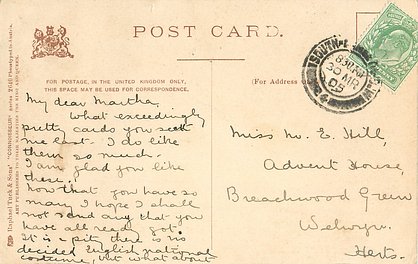 POST CARD.
FOR POSTAGE, IN THE UNITED KINGDOM ONLY,
THIS SPACE MAY BE USED FOR CORRESPONDENCE.
(For Address
Raphael Tuck & Sons' "CONNOISSEUR" Series 2601
ART PUBLISHERS TO THEIR MAJESTIES THE KING AND QUEEN.
My dear Martha,
What exceedingly
pretty cards you sent
me last. I do like
them so much.
I am glad you like
these.
Now that you have so
many I hope I shall
not send any that you
have all ready got.
It is a pity there is no
decided English national
costume, but what about
8.30 PM
30 MR
05
Miss M. E. Hill,
Advent House,
Breachwood Green
Welwyn.
Herts.